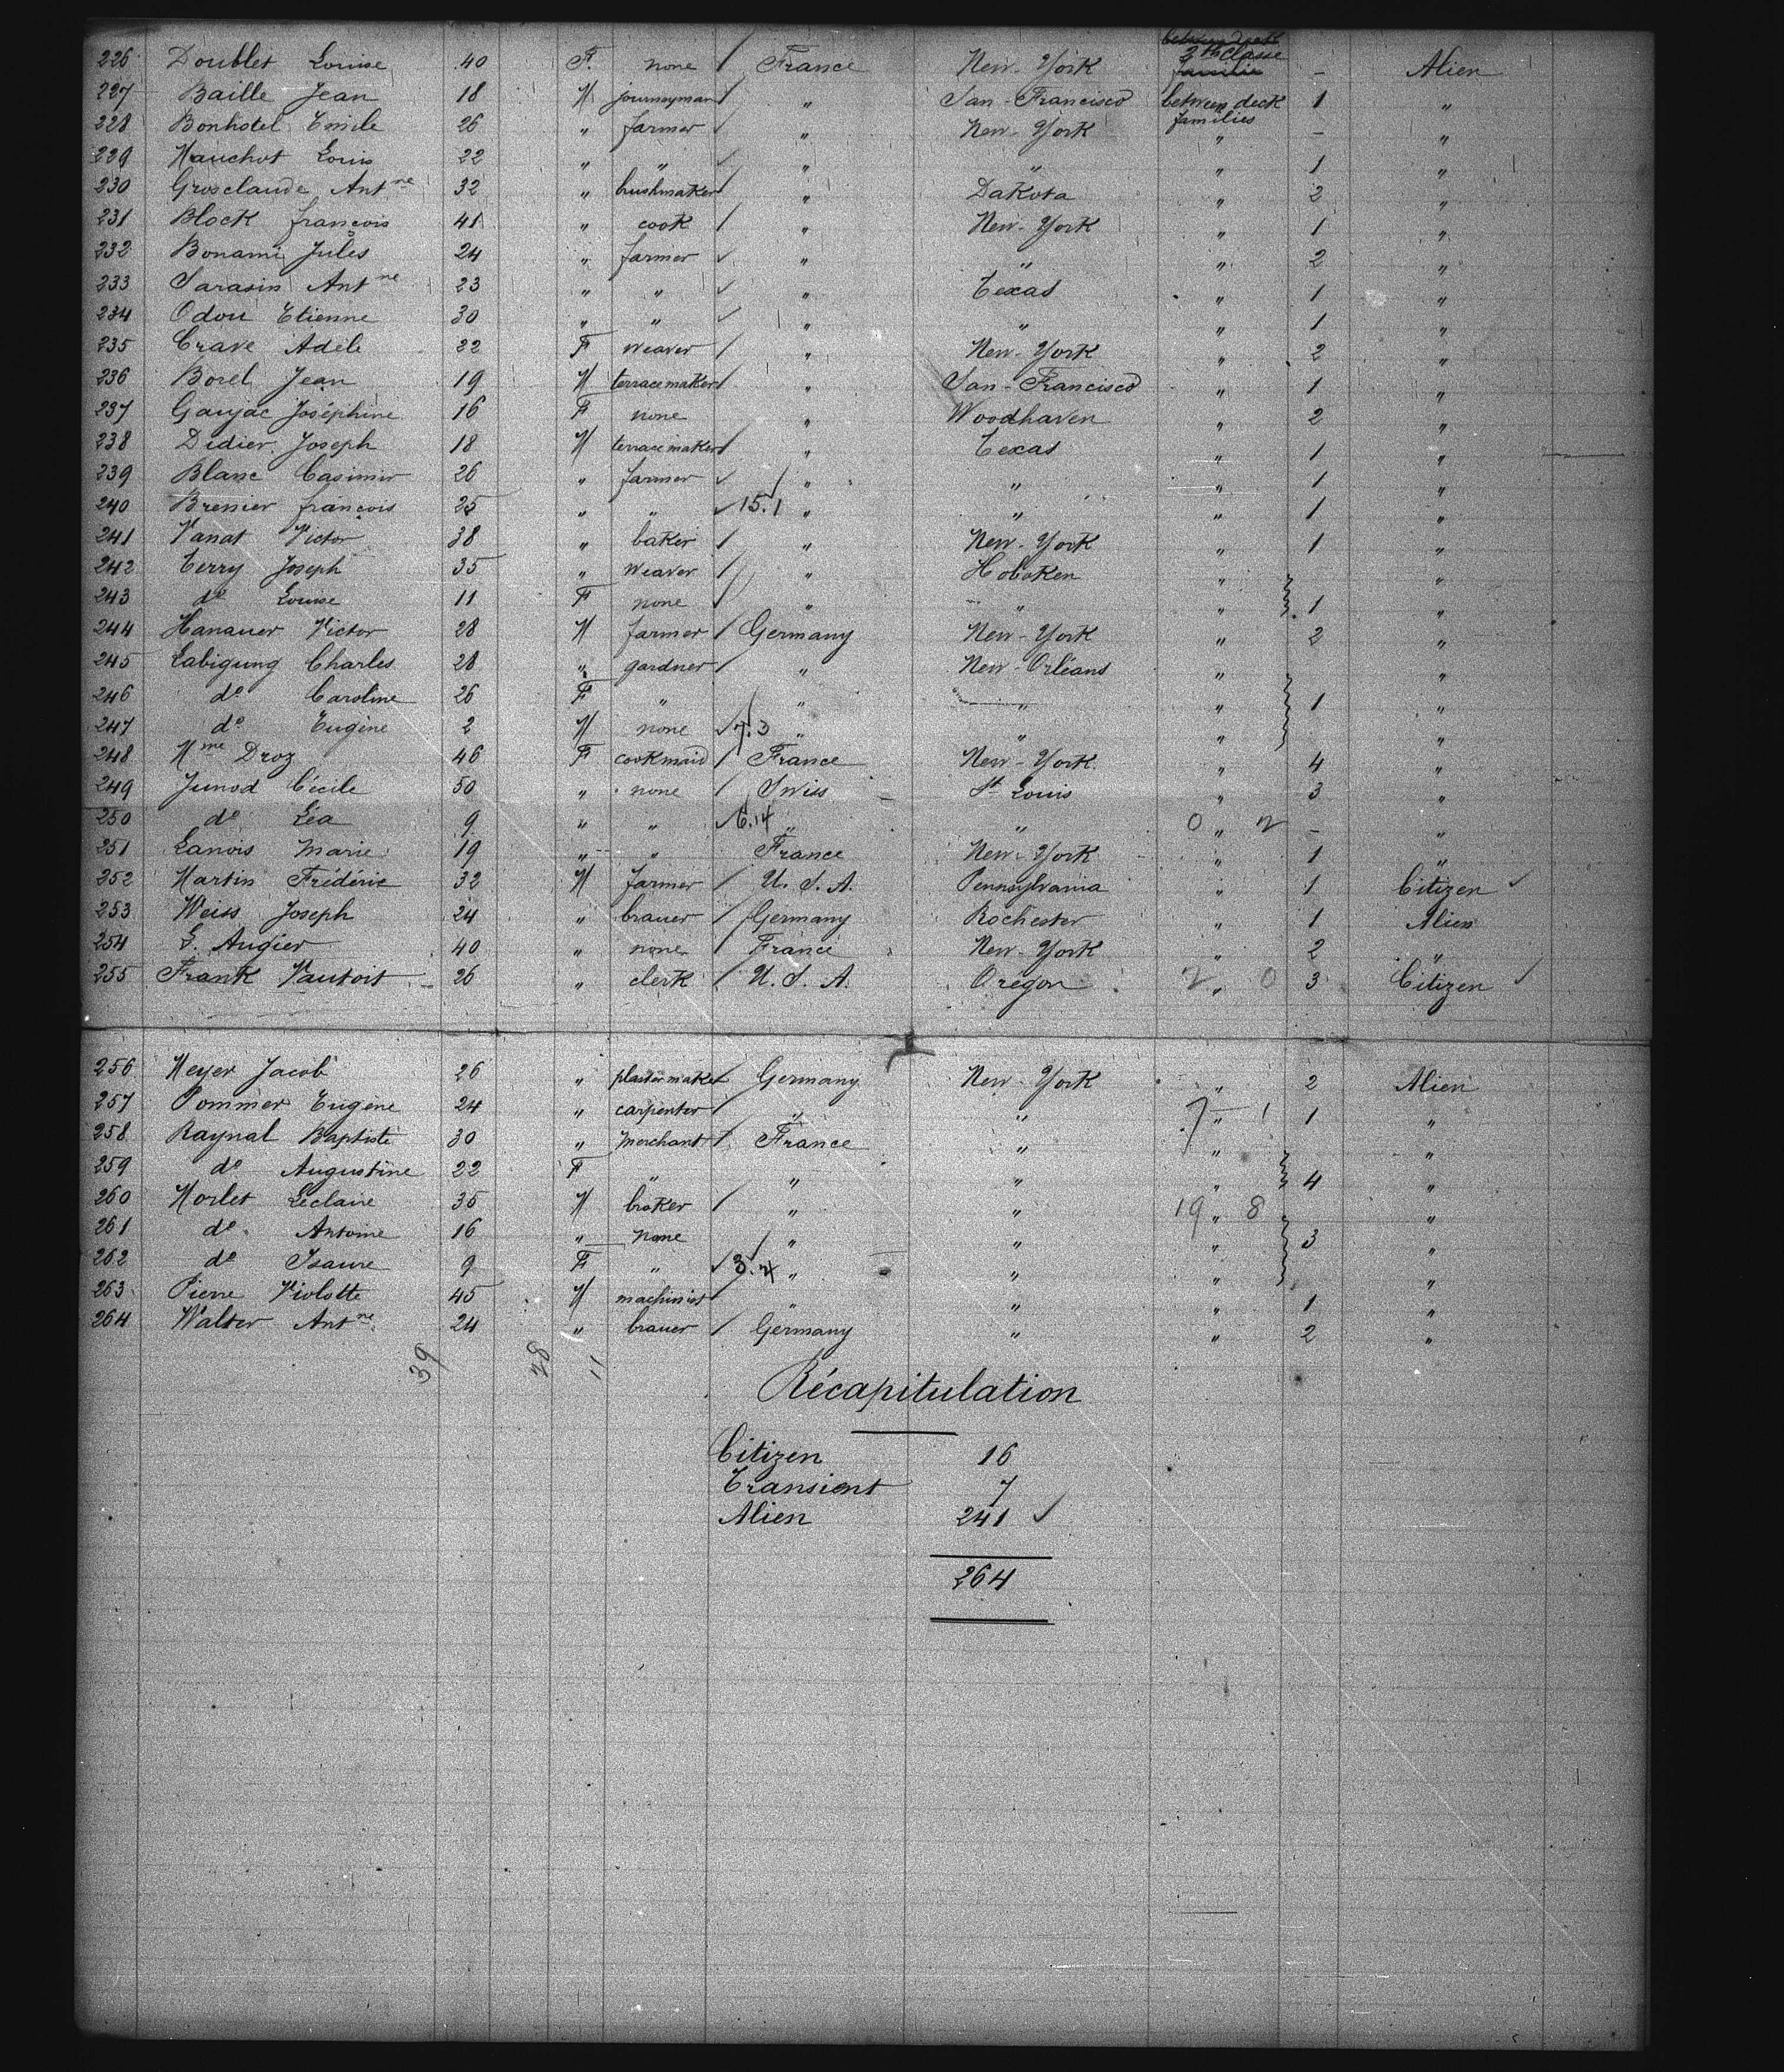 226 Doublet Louise 40 F. none / France New-York 2th Classe - Alien
227 Baille Jean 18 M journeyman / " San-Francisco between deck families 1 "
228 Bonhotel Emile 26 " farmer ✓ " New-York " - "
229 Mauchot Louis 22 " " ✓ " " " 1 "
230 Grosclaude Antne 32 " bushmaker / " Dakota " 2 "
231 Block françois 41 " cook / " New-York " 1 "
232 Bonami Jules 24 " farmer ✓ " " " 2 "
233 Sarasin Antne 23 " " ✓ " Texas " 1 "
234 Odou Etienne 30 " " ✓ " " " 1 "
235 Crave Adèle 22 F weaver / " New-York " 2 "
236 Borel Jean 19 M terracemaker / " San-Francisco " 1 "
237 Gaujac Joséphine 16 F none " Woodhaven " 2 "
238 Didier Joseph 18 M terracemaker / " Texas " 1 "
239 Blanc Casimir 26 " farmer ✓ " " " 1 "
240 Bresier françois 25 " " ✓ 15.1 " " " 1 "
241 Vanat Victor 38 " baker / " New-York " 1 "
242 Terry Joseph 35 " weaver / " Hoboken " "
243 do Louise 11 F none ✓ " " " 1 "
244 Hanauer Victor 28 M farmer / Germany New-York " 2 "
245 Labigung Charles 28 " gardner / " New-Orléans " "
246 do Caroline 26 F " " " " 1 "
247 do Eugène 2 M none ✓ 7.3 " " " "
248 Mme Droz 46 F cookmaid / France New-York " 4 "
249 Junod Cécile 50 " none / Swiss St Louis " 3 "
250 do Léa 9 " " ✓ 6.14 " " 0 " 2 - "
251 Lanois Marie 19 " " France New-York " 1 "
252 Martin Frédéric 32 M farmer / U.S.A. Pennsylvania " 1 Citizen ✓
253 Weiss Joseph 24 " brauer / Germany Rochester " 1 Alien
254 E. Augier 40 " none / France New-York " 2 "
255 Frank Vautoit 26 " clerk / U.S.A. Orégon 2 " 0 3 Citizen ✓
256 Meyer Jacob 26 " plastermaker / Germany New-York " 2 Alien
257 Pommer Eugène 24 " carpenter / " " 7 " 1 1 "
258 Raynal Baptiste 30 " merchant / France " " "
259 do Augustine 22 F " " " " 4 "
260 Morlet Leclaire 35 M broker / " " 19 " 8 "
261 do Antoine 16 " none " " " 3 "
262 do Isaure 9 F " ✓ 3.4 " " " "
263 Pierre Violotte 45 M machinist / " " " 1 "
264 Walter Antne 24 " brauer / Germany " " 2 "
39 28 11
Récapitulation
Citizen 16
Transient 7
Alien 241 ✓
264